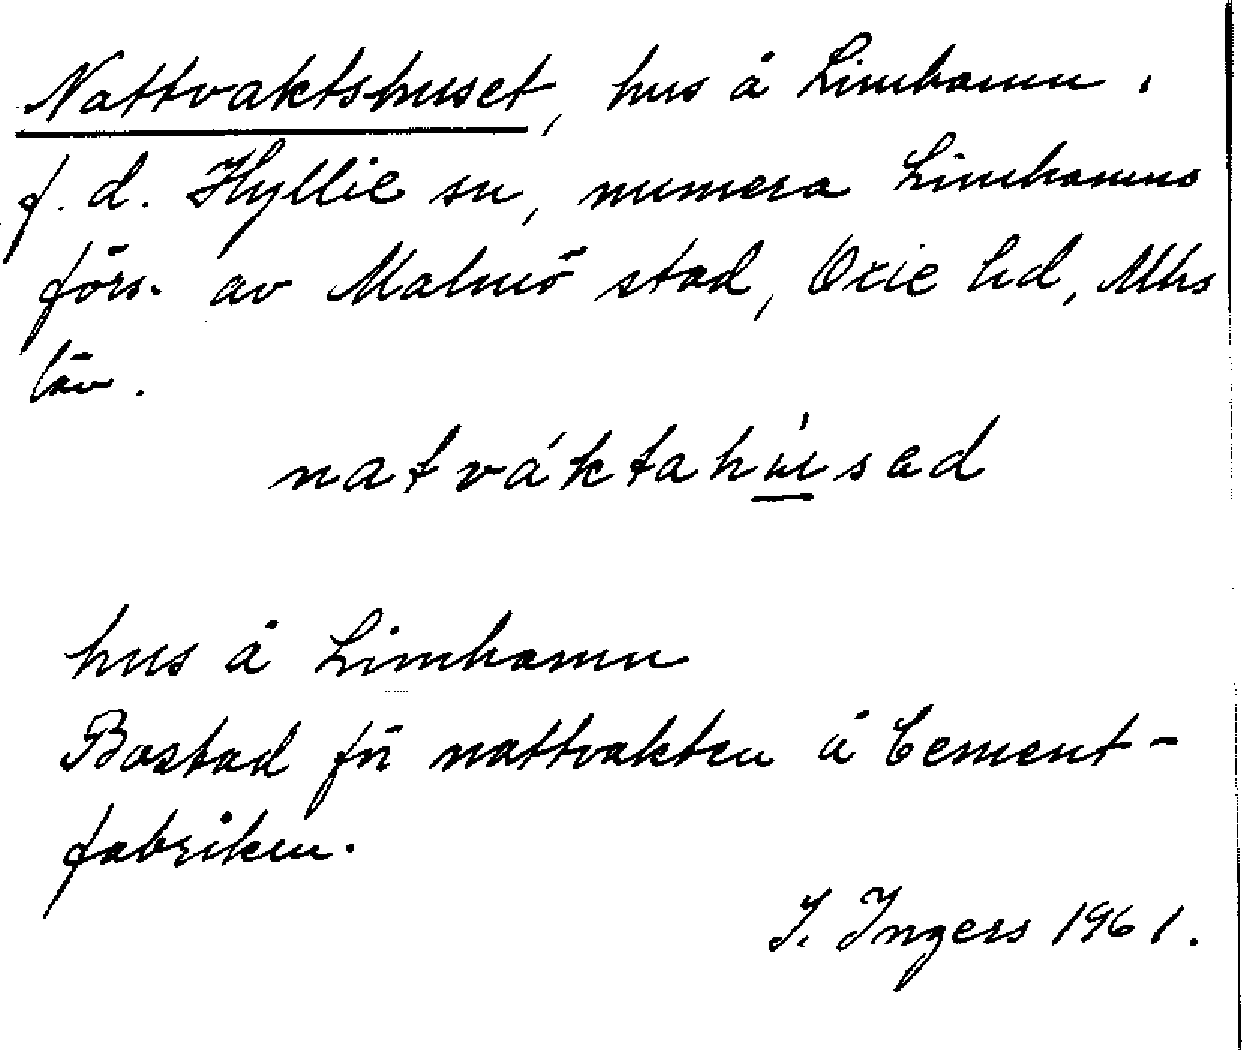 Nattvaktshuset, hus å Limhamn i
f.d. Hyllie sn, numera Limhamns
förs. av Malmö stad, Oxie hd, Mhs
län.
natváktahúsad
hus å Limhamn
Bostad för nattvakten å Cement-
fabriken.
I. Ingers 1961.